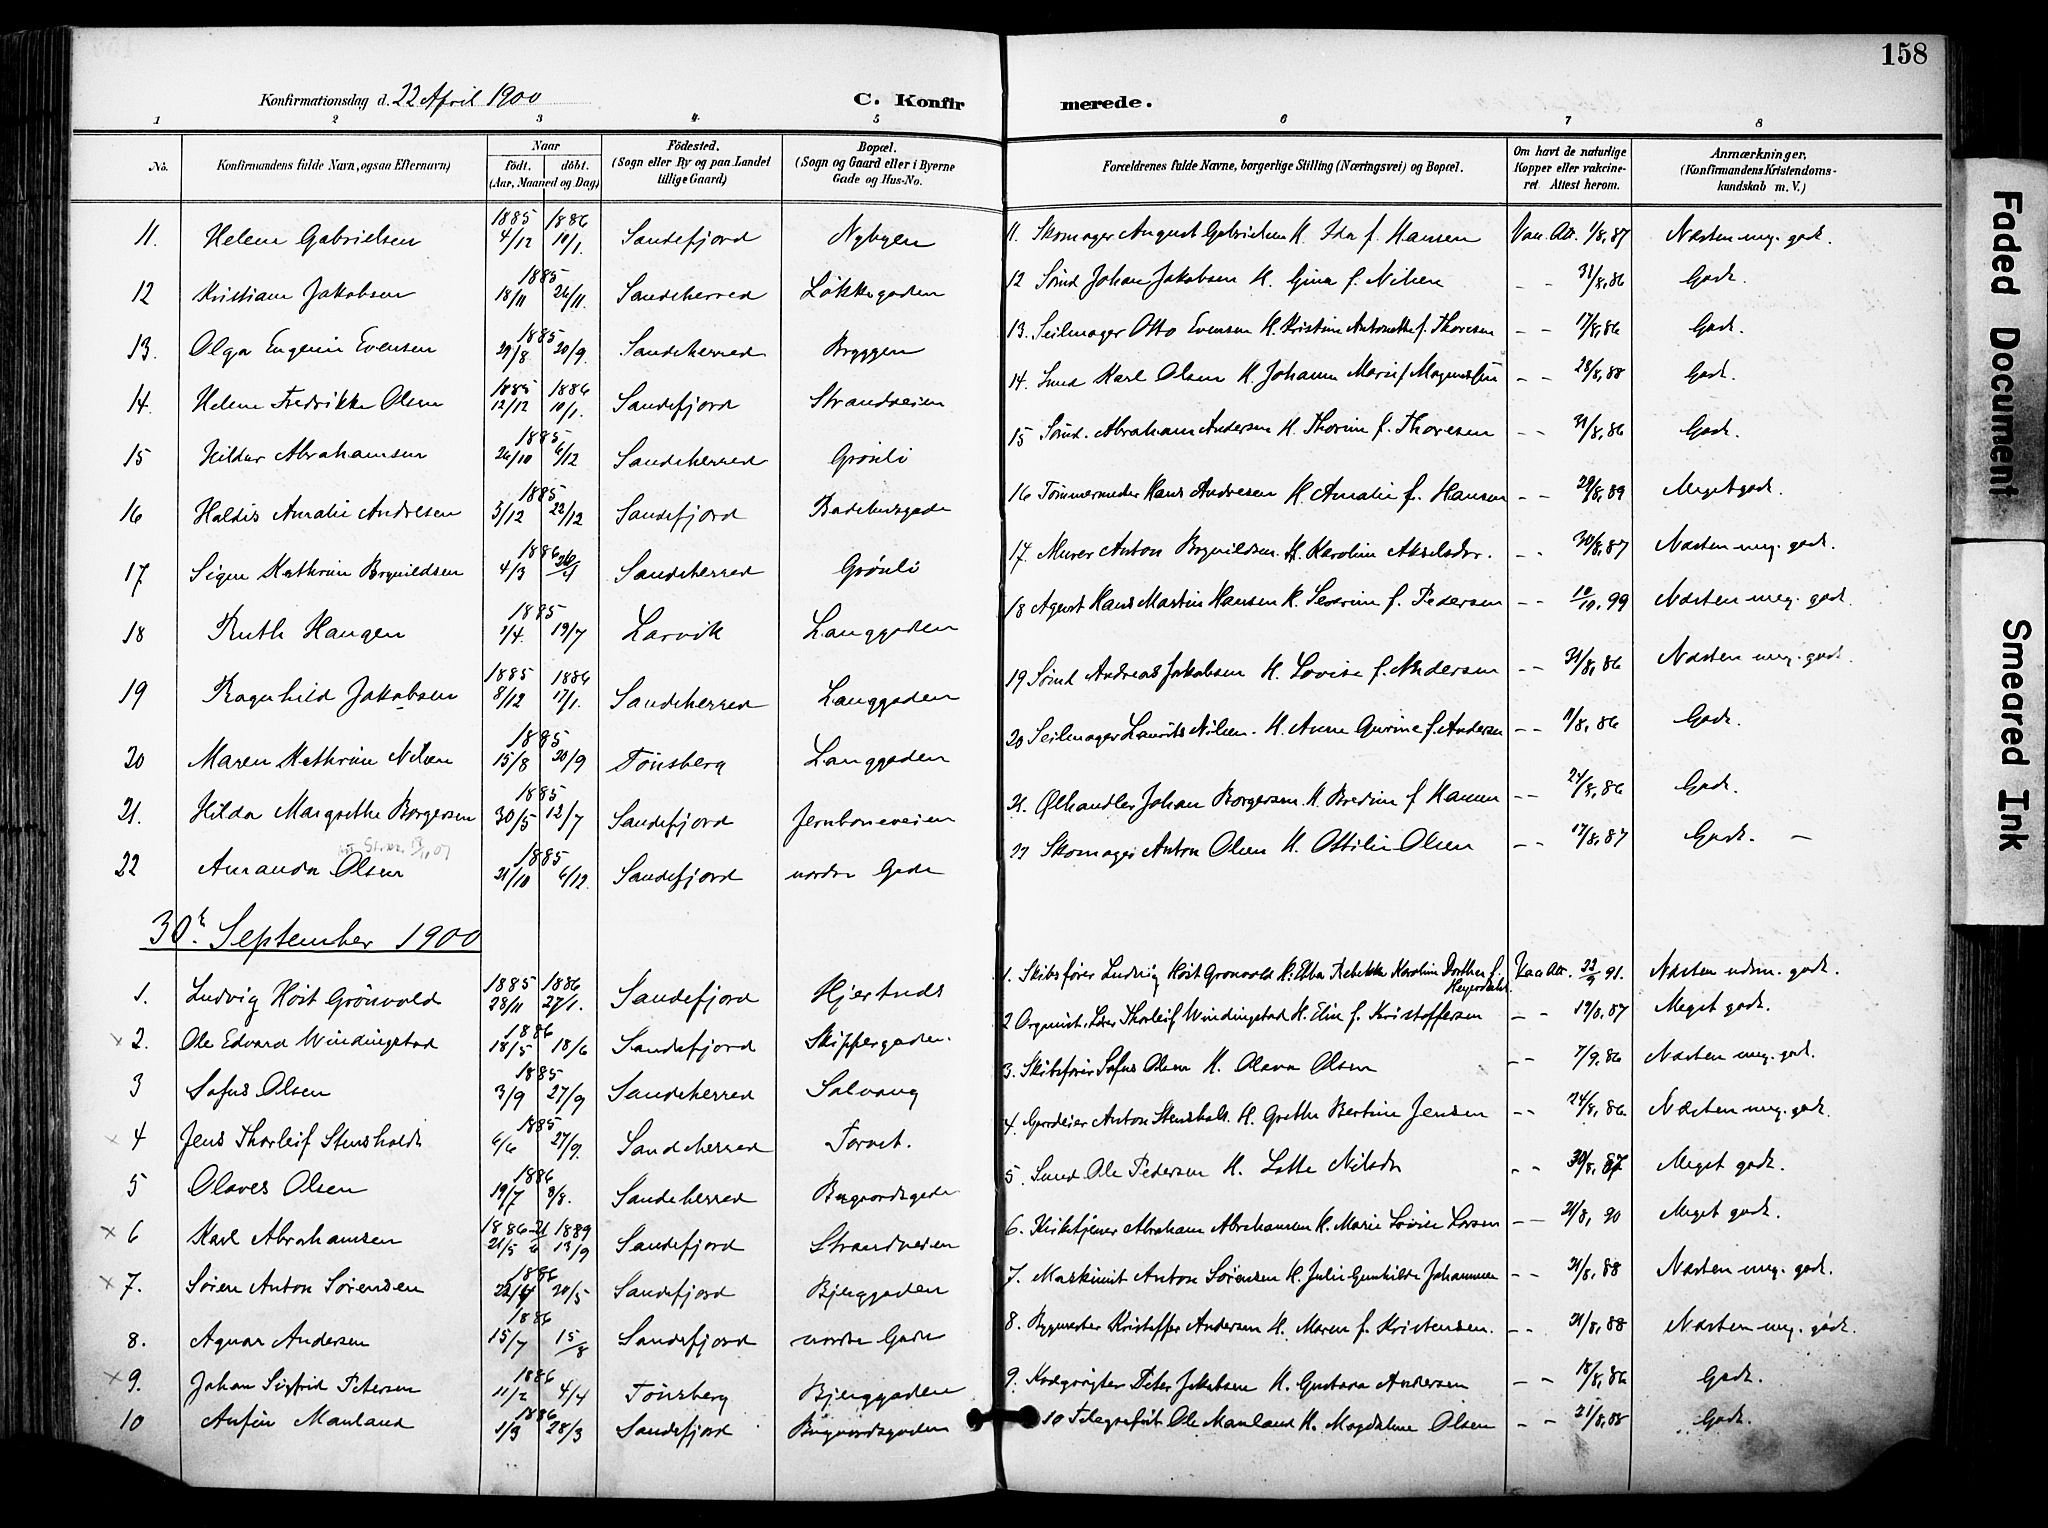 158
Konfirmationsdag d. 22 April 1900
C. Konfirmerede.
1 2 3 4 5 6 7 8
No. Konfirmandens fulde Navn, ogsaa Efternavn) Naar født. døbt. (Aar, Maaned og Dag) Fødested. (Sogn eller By og paa Landet tillige Gaard) Bopæl. (Sogn og Gaard eller i Byerne Gade og Hus-No. Forældrenes fulde Navne, borgerlige Stilling (Næringsvei) og Bopæl. Om havt de naturlige Kopper eller vakcineret. Attest herom. Anmærkninger. (Konfirmandens Kristendomskundskab m. V.)
11. Helene Gabrielsen 1885 4/12 1886 10/1. Sandefjord Nybyen 11. Skomager August Gabrielsen H. Ida f. Hansen Vac. Att. 1/8, 87 Næsten meg. godt.
12 Kristiane Jakobsen 1885 18/11 26/11. Sandeherred Løkkegaden 12 Sømd Johan Jakobsen H. Gina f. Nilsen - - 31/8, 86 Godt.
13. Olga Eugenie Evensen 1885 29/8 20/9. Sandeherred Bryggen 13. Seilmager Otto Evensen H. Kristine Antonette f. Thoresen - - 17/8, 86 Godt.
14. Helene Fredrikke Olsen 1885 12/12 1886 10/1. Sandefjord Strandveien 14. Smed Karl Olsen H. Johanne Marie f. - - 28/8, 88 Godt.
15 Hildur Abrahamsen 1885 26/10 6/12 Sandeherred Grønli 15 Sømd. Abraham Andersen H. Thorine f. Thoresen - - 31/8, 86 Godt.
16 Haldis Amalie Andresen 1885 3/12 22/12 Sandefjord Badehusgade 16 Tømmermder Hans Andresen H. Amalie f. Hansen - - 29/8, 89 Meget godt.
17 Signe Kathrine Brynildsen 1886 4/3 26/4 Sandeherred Grønli 17. Murer Anton Brynildsen H. Karoline Akselsdtr. - - 30/8, 87 Næsten meg. godt.
18 Ruth Hansen 1885 /4. 19/7 Larvik Langgaden 18 Agent Hans Martin Hansen H. Severine f. Pedersen - - 10/10, 99 Næsten meg. godt.
19 Ragnhild Jakobsen 1885 8/12 1886 17/1. Sandeherred Langgaden 19 Sømd Andreas Jakobsen H. Lovise f. Andersen - - 31/8, 86 Næsten meg. godt.
20 Maren Kathrine Nilsen 1885 15/8 20/9 Tönsberg Langgaden 20 Seilmager Laurits Nilsen. H. Anne Gurine f. Andersen - - /8, 86 Godt.
21. Hilda Margrethe Borgersen 1885 30/5 12/7 Sandefjord Jernbaneveien 21. Ølhandler Johan Borgersen H. Bredine f. Hansen - - 24/8, 86 Godt.
22 Amanda Olsen 1885 21/10 6/12. Sandefjord nordre Gade 22 Skomager Anton Olsen H. Ottilie Olsen - - 17/8, 87 Godt. -
30te September 1900
1. Ludvig Høst Grønvold 1885 28/11 1886 27/1. Sandefjord Hjertnes 1. Skibsfører Ludvig Høst Grønvold H. Rebekka Karoline Dorthea f. Heyerdahl Vac. Att. 22/9 91. Næsten udm. godt.
x 2. Ole Edvard Windingstad 1886 18/5 18/6 Sandefjord Skippergaden. 2 Organist, Lærer Thorleif Windingstad H. Elin f. Kristoffersen - - 19/8, 87 Meget godt.
3 Sofus Olsen 1885 3/9 27/9 Sandeherred Solvang 3. Skibsfører Sofus Olsen H. Olava Olsen - - 7/9, 86 Næsten meg. godt.
x 4 Jens Thorleif Stensholdt 1885 6/6 27/9. Sandeherred Torvet. 4. Gaardeier Anton Stensholt. H. Grethe Bertine Jensen - - 24/8, 86 Næsten meg. godt.
5 Olaves Olsen 1886 19/7 8/8. Sandeherred Bugaardsgade 5. Smed Ole Pedersen H. Lotte Nilsdr - - 30/8, 87 Meget godt.
x 6 Karl Abrahamsen 1886 21/5 1889 13/9 Sandefjord Strandveien 6. Kirketjener Abraham Abrahamsen H. Marie Lovise Larsen - - 21/8, 90 Meget godt.
x 7. Søren Anton Sørensen 1886 22/4 20/5 Sandefjord Bjerggaden 7. Maskinist Anton Sørensen H. Julie Gunhilde Johannesen - - 31/8, 88 Næsten meg. godt.
8. Agnar Andersen 1886 15/7 15/8 Sandefjord nordre Gade 8. Bygmester Kristoffer Andersen H. Maren f. Kristensen. - - 31/8, 88 Næsten meg. godt.
x 9. Johan Sigfrid Petersen 1886 11/2 4/4 Tönsberg Bjerggaden 9. Peter Jakobsen H. Gustava Andersen - - 18/8, 86 Godt.
10 Anfin Manland 1886 1/3 28/3 Sandefjord Bugaardsgaden 10 Telegrafist Ole Manland H. Magdalene Olsen - - 21/8, 88 Godt.
Faded Document
Smeared Ink